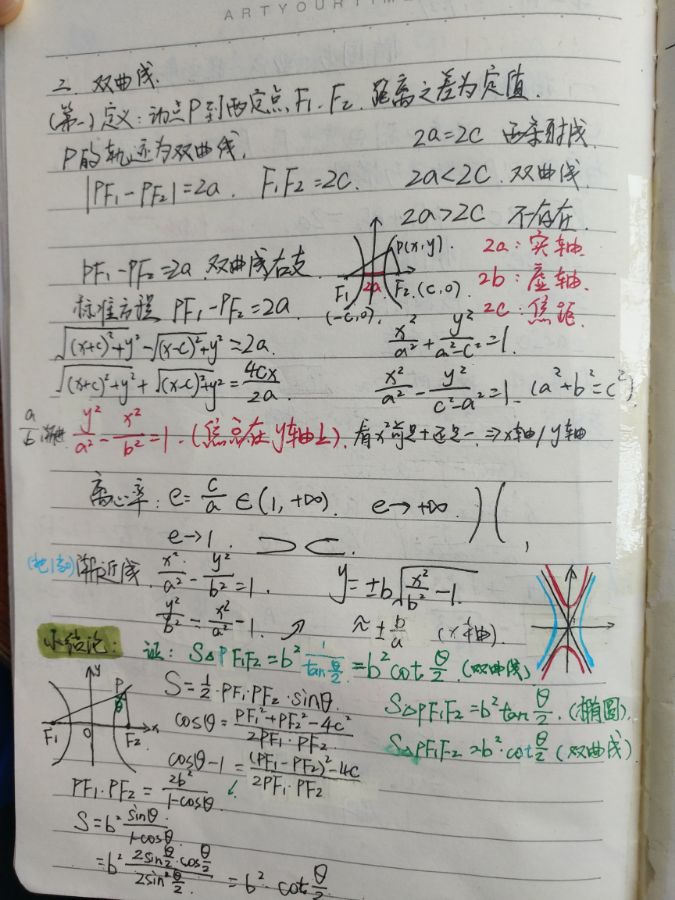 ARTYOURTIME
二. 双曲线.
(第一)定义:动点P到两定点F₁.F₂.距离之差为定值.
P的轨迹为双曲线.
2a=2c 两条射线
|PF₁-PF₂|=2a. F₁F₂=2c. 2a<2c. 双曲线.
2a>2c 不存在.
PF₁-PF₂=2a.双曲线右支.
P(x,y).
F₁ 2a F₂.(c,0).
(-c,0).
2a:实轴
2b:虚轴.
2c:焦距.
标准方程 PF₁-PF₂=2a.
√(x+c)²+y² - √(x-c)²+y² = 2a.
x²/a² + y²/(a²-c²) = 1.
√(x+c)²+y² + √(x-c)²+y² = 4cx/2a
x²/a² - y²/(c²-a²) = 1. (a²+b²=c²)
a/b y²/a² - x²/b² = 1.(焦点在y轴上).看x²前是+还是-.⇒x轴/y轴
离心率:e=c/a ∈(1,+∞). e→+∞. )(
e→1. ⊃⊂.
渐近线 x²/a² - y²/b² = 1. y=±b√x²/b² - 1.
y²/b² = x²/a² - 1. ↗ ≈±b/a (x轴)
小结论: 证: S△PF₁F₂=b² 1/tan θ/2 =b²cot θ/2.(双曲线)
y P θ F₁ O F₂ x
S=1/2·PF₁·PF₂·sinθ.
S△PF₁F₂=b²tan θ/2.(椭圆).
cosθ=PF₁²+PF₂²-4c²/2PF₁·PF₂
S△PF₁F₂=b²·cot θ/2(双曲线)
cosθ-1=(PF₁-PF₂)²-4c/2PF₁·PF₂
PF₁·PF₂=2b²/1-cosθ
S=b² sinθ/1-cosθ
=b² 2sin θ/2 cos θ/2 / 2sin² θ/2 = b²·cot θ/2